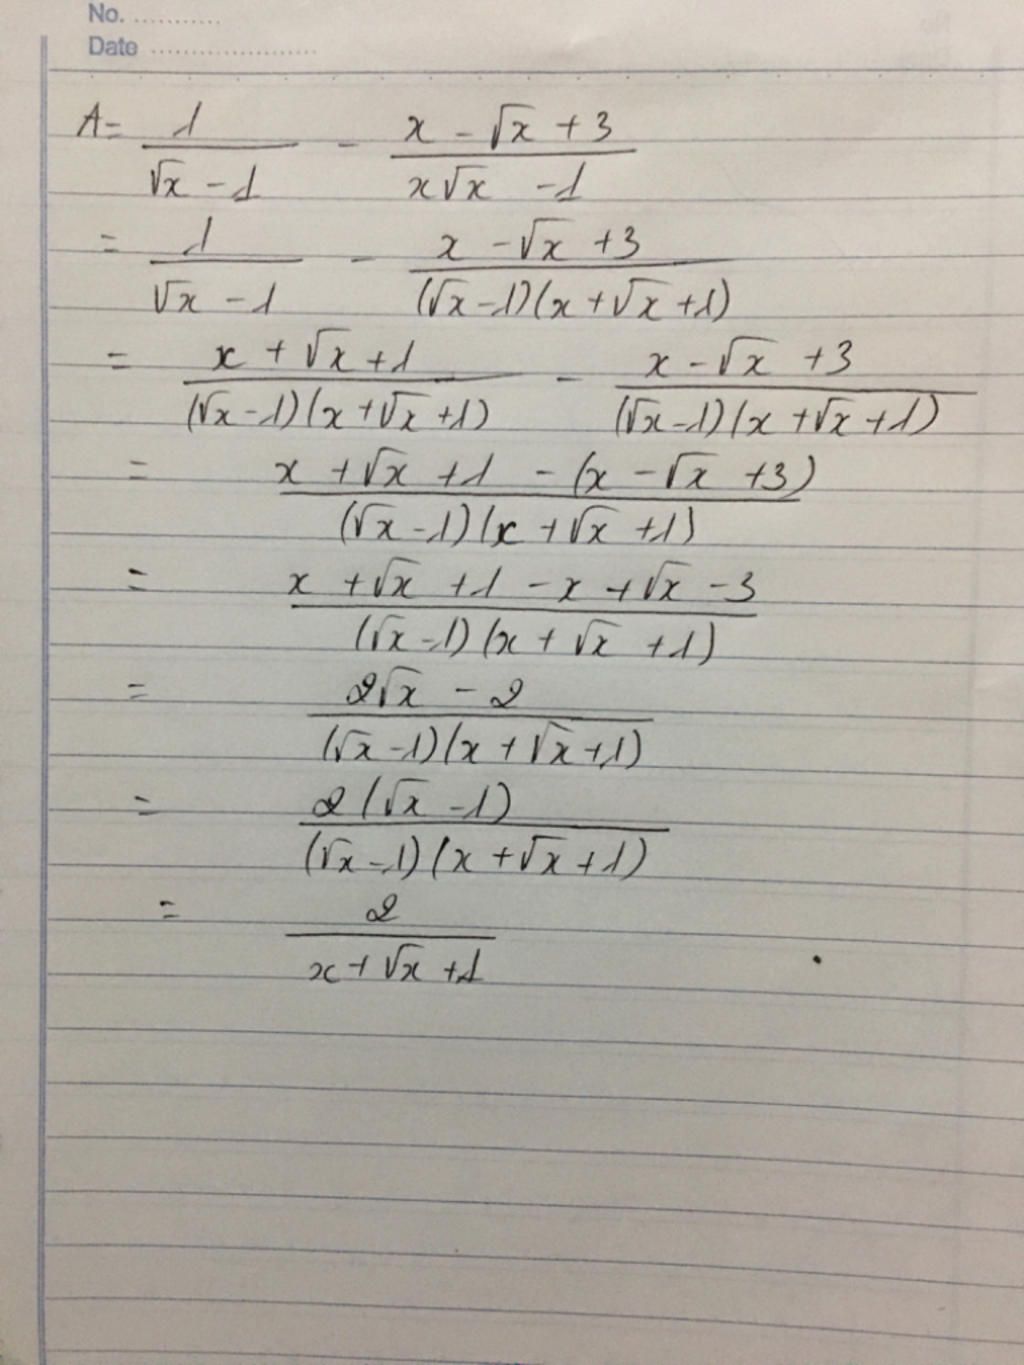 No. ...........
Date .....................
A = 1/(√x - 1) - (x - √x + 3)/(x√x - 1)
= 1/(√x - 1) - (x - √x + 3)/((√x - 1)(x + √x + 1))
= (x + √x + 1)/((√x - 1)(x + √x + 1)) - (x - √x + 3)/((√x - 1)(x + √x + 1))
= (x + √x + 1 - (x - √x + 3))/((√x - 1)(x + √x + 1))
= (x + √x + 1 - x + √x - 3)/((√x - 1)(x + √x + 1))
= (2√x - 2)/((√x - 1)(x + √x + 1))
= 2(√x - 1)/((√x - 1)(x + √x + 1))
= 2/(x + √x + 1)